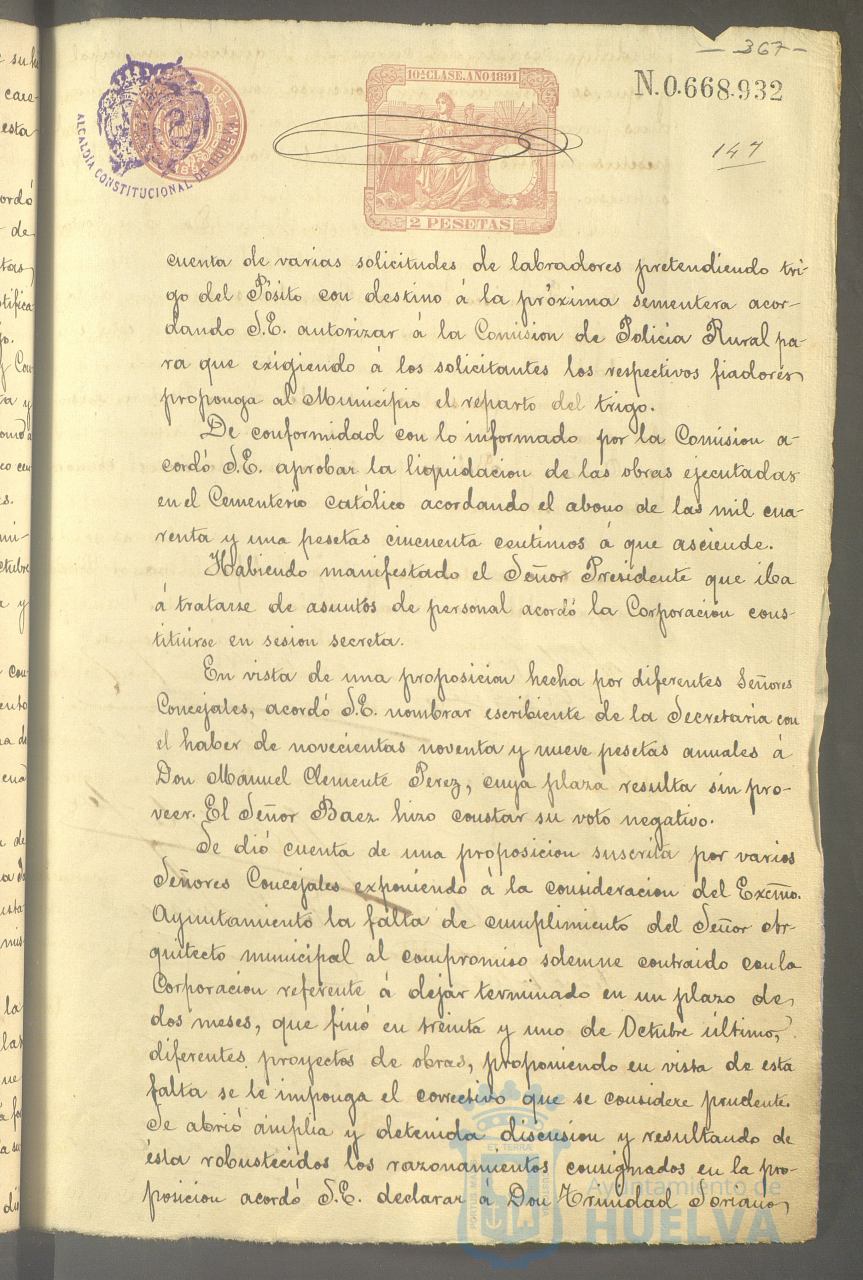 - 367 -
10ª CLASE. AÑO 1891
N.0.668.932
ALCALDÍA CONSTITUCIONAL DE HUELVA
147
2 PESETAS
cuenta de varias solicitudes de labradores pretendiendo tri-
go del Pósito con destino á la próxima sementera acor-
dando S.E. autorizar á la Comision de Policia Rural pa-
ra que exigiendo á los solicitantes los respectivos fiadores
proponga al Municipio el reparto del trigo.
De conformidad con lo informado por la Comision a-
cordó S.E. aprobar la liquidacion de las obras ejecutadas
en el Cementerio católico acordando el abono de las mil cua-
renta y una pesetas cincuenta centimos á que asciende.
Habiendo manifestado el Señor Presidente que iba
á tratarse de asuntos de personal acordó la Corporacion cons-
tituirse en sesion secreta.
En vista de una proposicion hecha por diferentes Señores
Concejales, acordó S.E. nombrar escribiente de la Secretaria con
el haber de novecientas noventa y nueve pesetas anuales á
Don Manuel Clemente Perez, cuya plaza resulta sin pro-
veer. El Señor Baez hizo constar su voto negativo.
Se dió cuenta de una proposicion suscrita por varios
Señores Concejales exponiendo á la consideracion del Excmo.
Ayuntamiento la falta de cumplimiento del Señor Ar-
quitecto municipal al compromiso solemne contraido con la
Corporacion referente á dejar terminado en un plazo de
dos meses, que finó en treinta y uno de Octubre último,
diferentes proyectos de obras, proponiendo en vista de esta
falta se le imponga el correctivo que se considere prudente.
Se abrió ámplia y detenida discusion y resultando de
ésta robustecidos los razonamientos consignados en la pro-
posicion acordó S.E. declarar á Don Trinidad Soriano
Ayuntamiento de
HUELVA